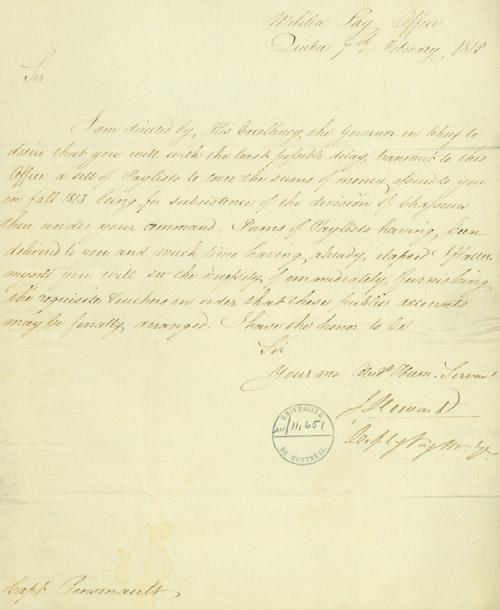 Militia Pay Office
Quebec 7th February 1815
Sir
I am directed by His Excellency the Governor in Chief to
desire that you will with the least possible delay transmit to this
Office a sett of Paylists to cover the sums of money issued to you
in fall 1813 being for subsistence of the division of Chasseurs
then under your command. Forms of Paylists having been
delivered to you and much time having already elapsed I flatter
myself you will see the necessity of immediately furnishing
the requisite Vouchers in order that these public accounts
may be finally arranged. I have the honor to be
Sir
Your mo Obedt Hum. Servant
J Steward
UNIVERSITÉ
11,651
DE MONTRÉAL
Capt. Pinsonault